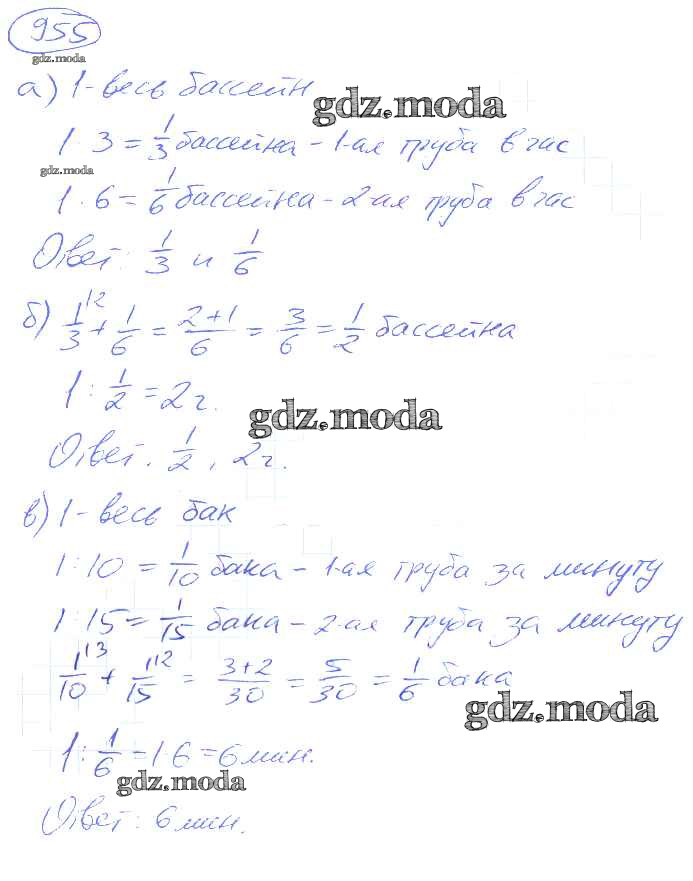 955
gdz.moda
а) 1 - весь бассейн
gdz.moda
1 3 = 1/3 бассейна - 1-ая труба в час
gdz.moda
1 . 6 = 1/6 бассейна - 2-ая труба в час
Ответ: 1/3 и 1/6
б) 1/3 \2 + 1/6 = 2+1/6 = 3/6 = 1/2 бассейна
1 : 1/2 = 2 ч.
gdz.moda
Ответ. 1/2, 2 ч.
в) 1 - весь бак
1 : 10 = 1/10 бака - 1-ая труба за минуту
1 : 15 = 1/15 бака - 2-ая труба за минуту
1/10 \3 + 1/15 \2 = 3+2/30 = 5/30 = 1/6 бака
gdz.moda
1 : 1/6 = 1 6 = 6 мин.
gdz.moda
Ответ: 6 мин.